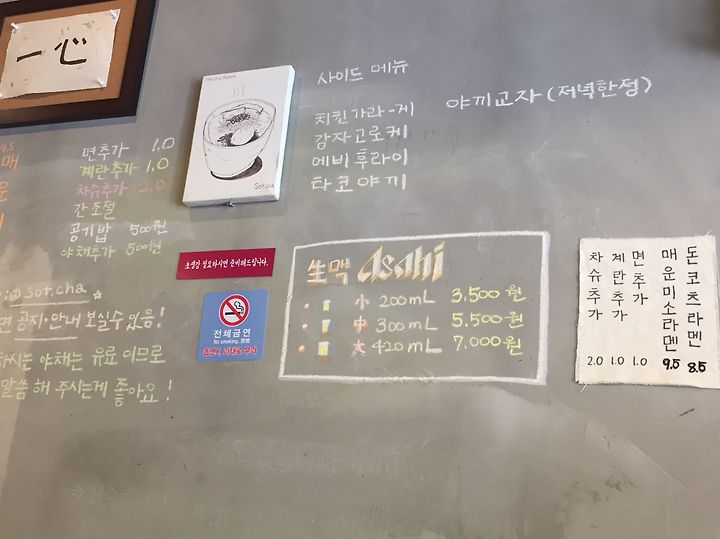 一心
9.5
매
면추가 1.0
계란추가 1.0
차슈추가 2.0
간조절
공기밥 500원
야채추가 500원
@ sor.cha
면 공지·안내 보실수 있음!
하시는 야채는 유료 이므로
말씀 해 주시는게 좋아요!
사이드 메뉴
치킨가라-게
감자고로케
에비후라이
타코야끼
야끼교자 (저녁한정)
초생강 필요하시면 준비해드립니다.
전체금연
No smoking, 禁煙
生맥 Asahi
小 200mL 3,500원
中 300mL 5,500원
大 420mL 7,000원
돈코츠라멘 8.5
매운미소라멘 9.5
면추가 1.0
계란추가 1.0
차슈추가 2.0